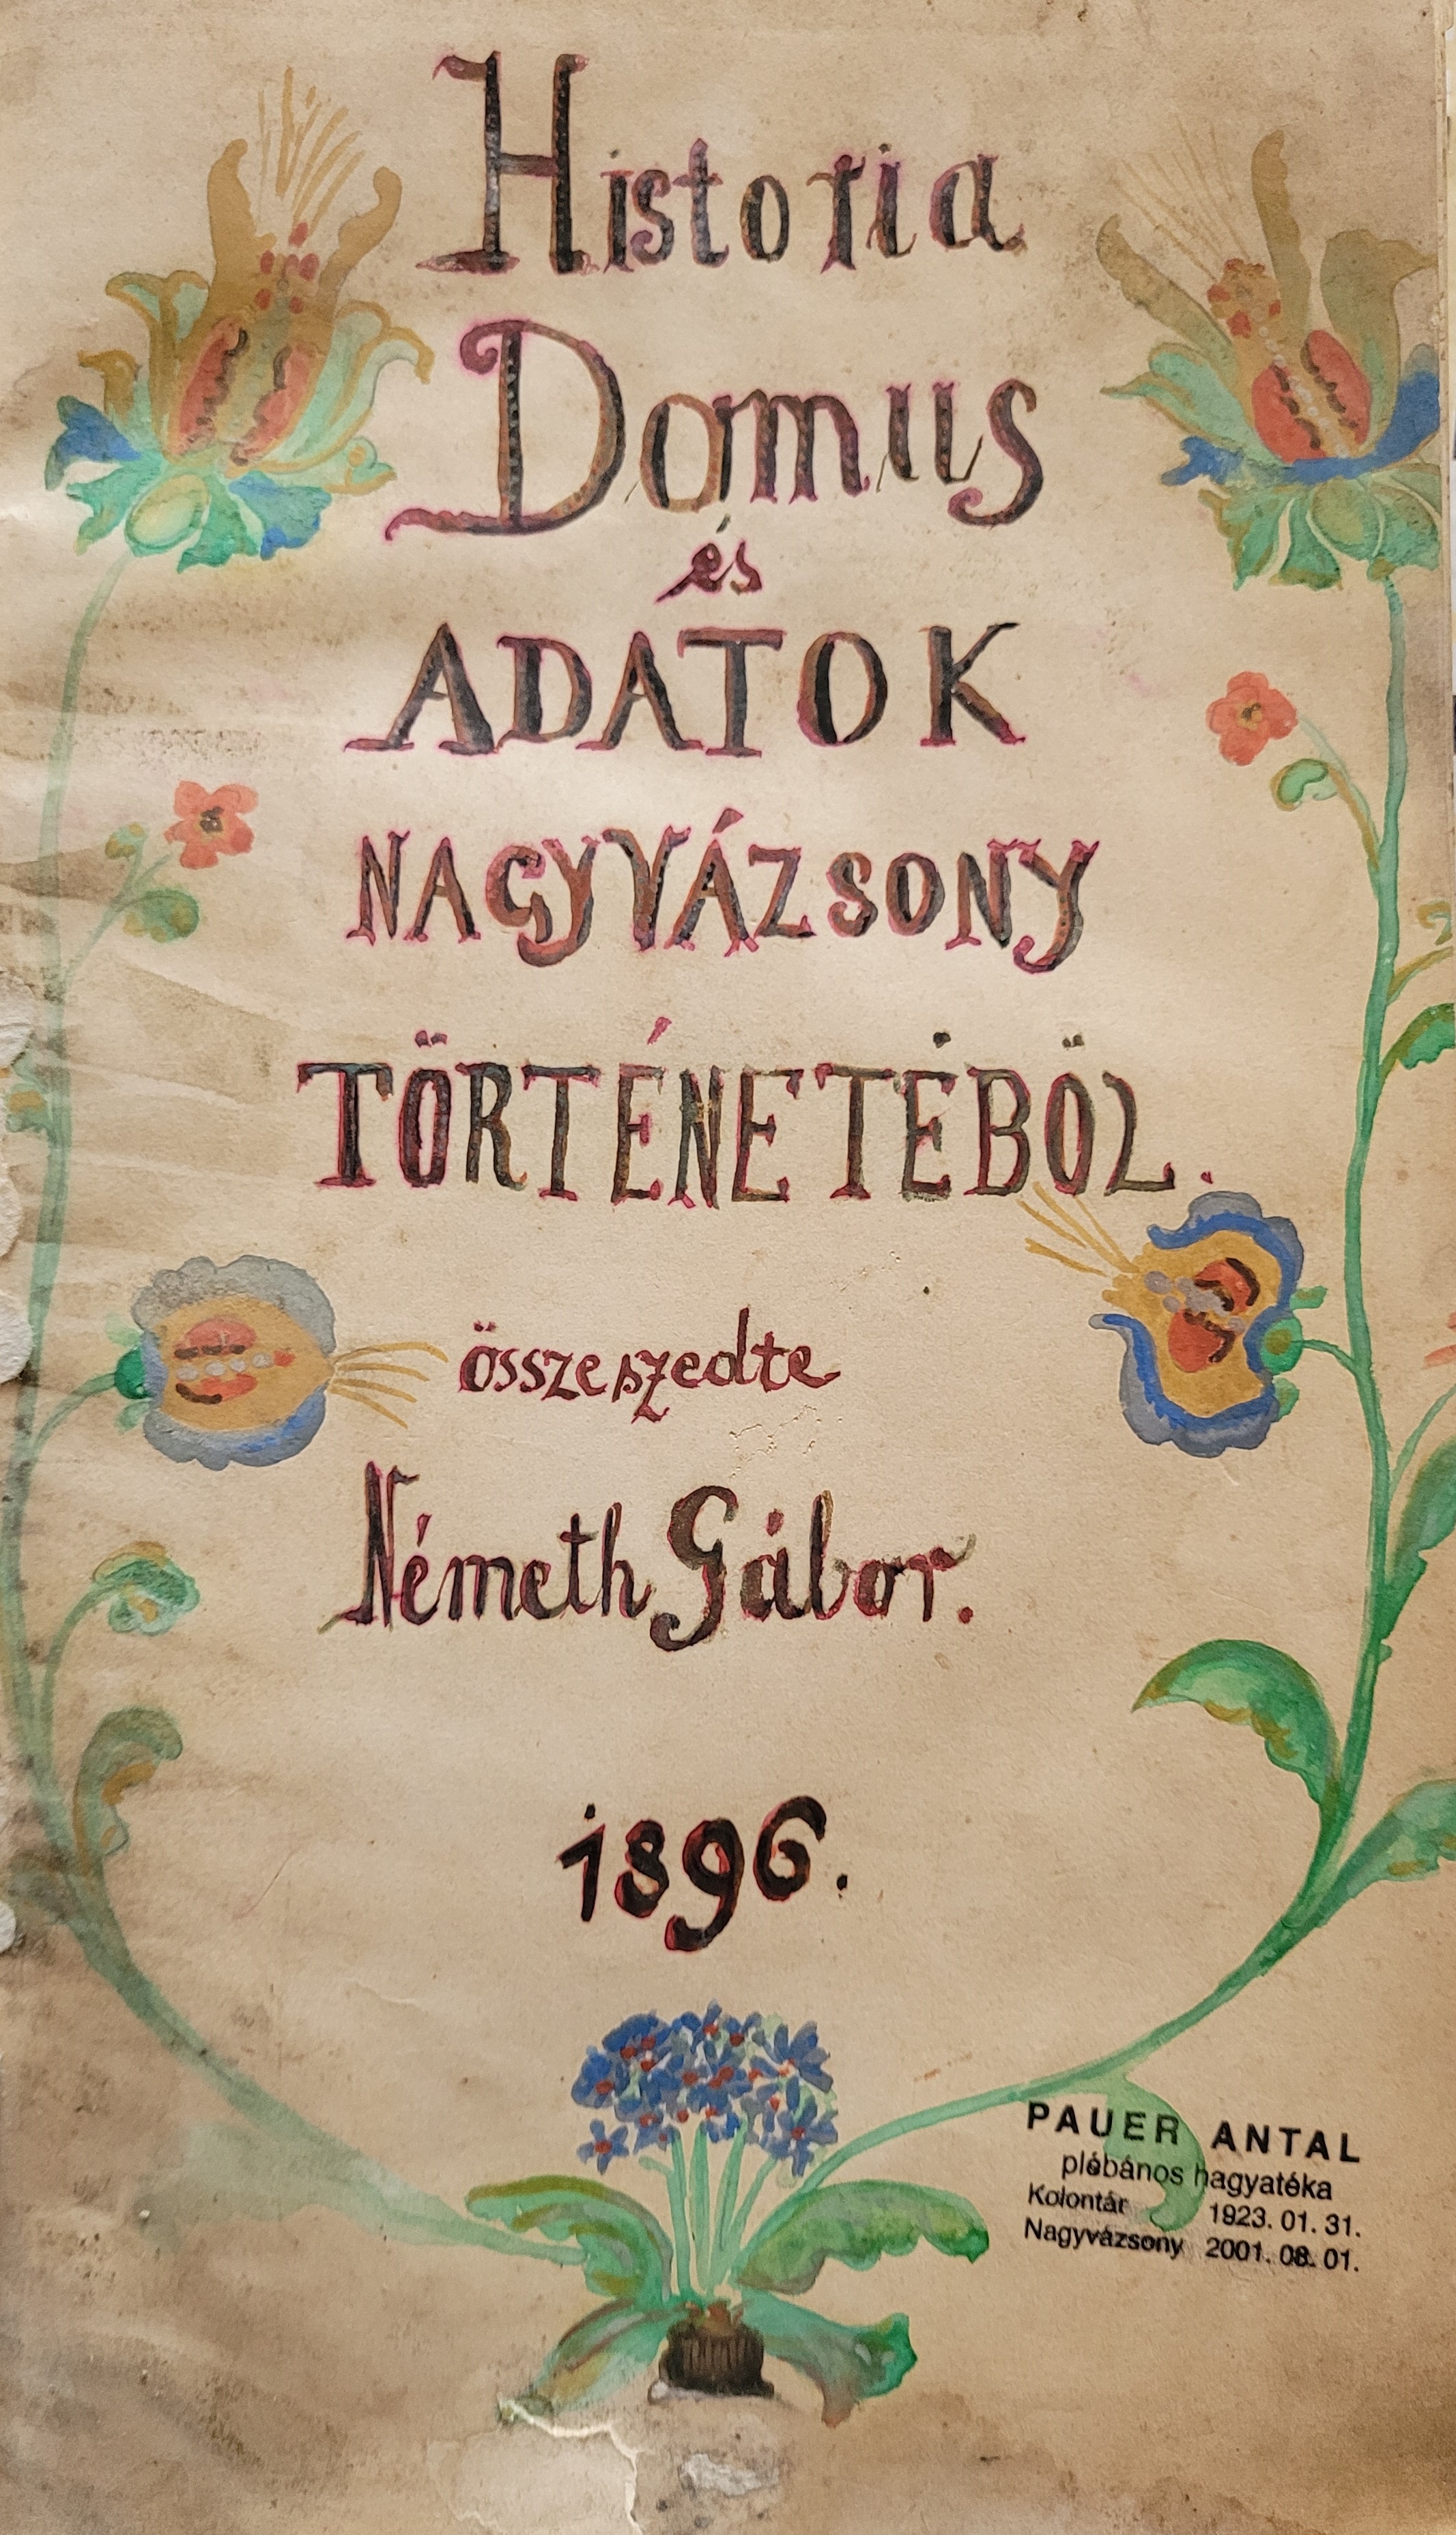 Historia
Domus
és
ADATOK
NAGYVÁZSONY
TÖRTÉNETÉBÖL.
összeszedte
Németh Gábor.
1896.
PAUER ANTAL
plébános hagyatéka
Kolontár 1923. 01. 31.
Nagyvázsony 2001. 08. 01.